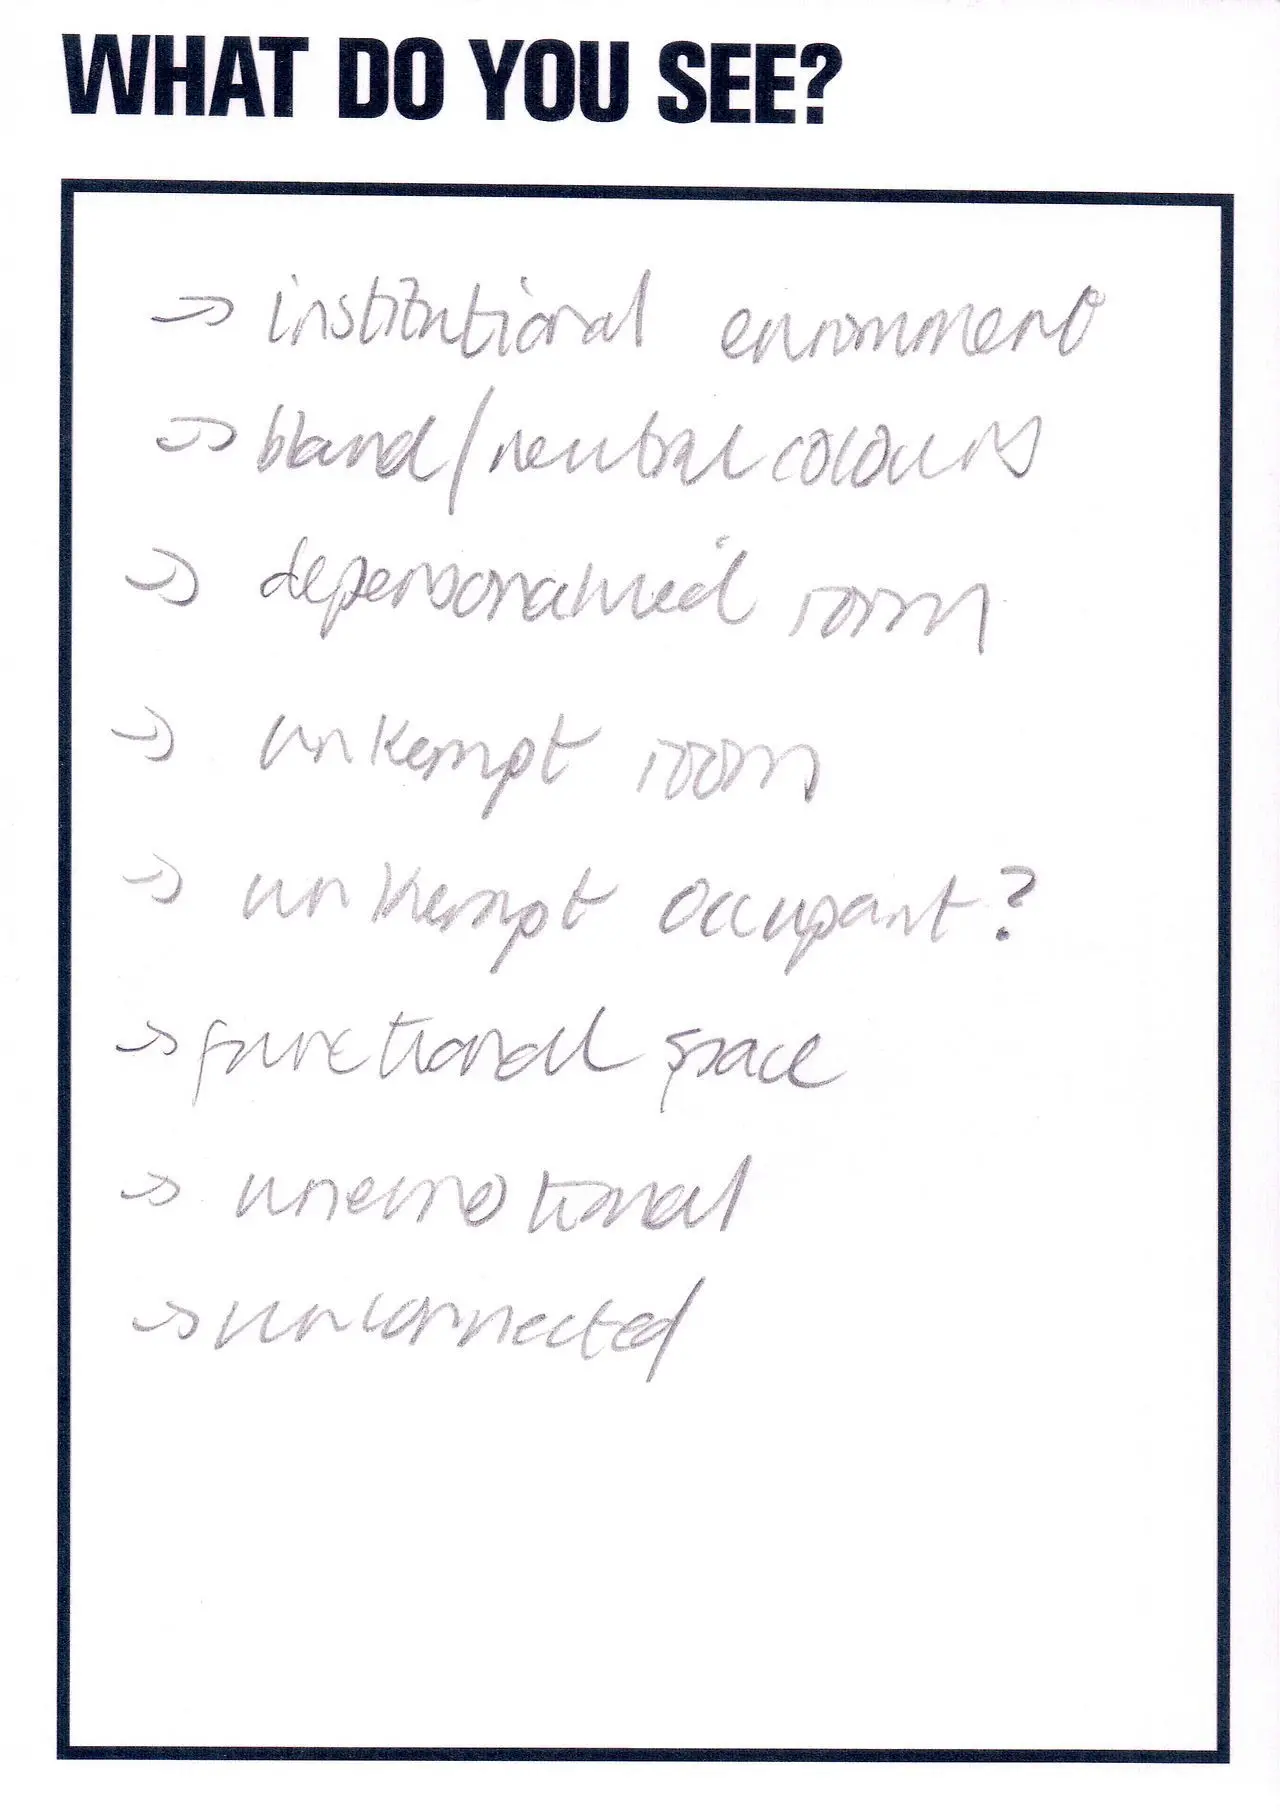 WHAT DO YOU SEE?
→ institutional environment
→ bland/neutral colours
→ depersonalised room
→ unkempt room
→ unkempt occupant?
→ functional space
→ unemotional
→ unconnected